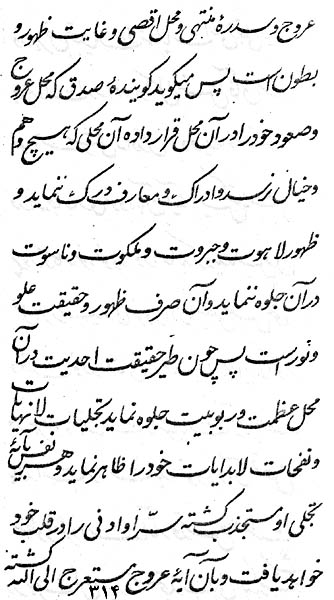 عروج و سدرهٔ منتهی و محل اقصی و غایت ظهور و
بطون است پس میگوید گویندهٔ صدق که محل عروج
و صعود خود را در آن محل قرار داده آن محلی که هیچ وهم
و خیال نرسد و ادراک و معارف درک ننماید و
ظهور لاهوت و جبروت و ملکوت و ناسوت
در آن جلوه ننماید و آن صرف ظهور و حقیقت علو
و نور است پس چون طیر حقیقت احدیت در آن
محل عظمت و ربوبیت جلوه نماید تجلیات لانهایات
و نفحات لابدایات خود را ظاهر نماید و هر نفس بآیهٔ
تجلی او ستجذب گشته سرّ او ادنی را در قلب خود
خواهد یافت و بآن آیهٔ عروج مستعرج الی الله گشته
۳۱۴